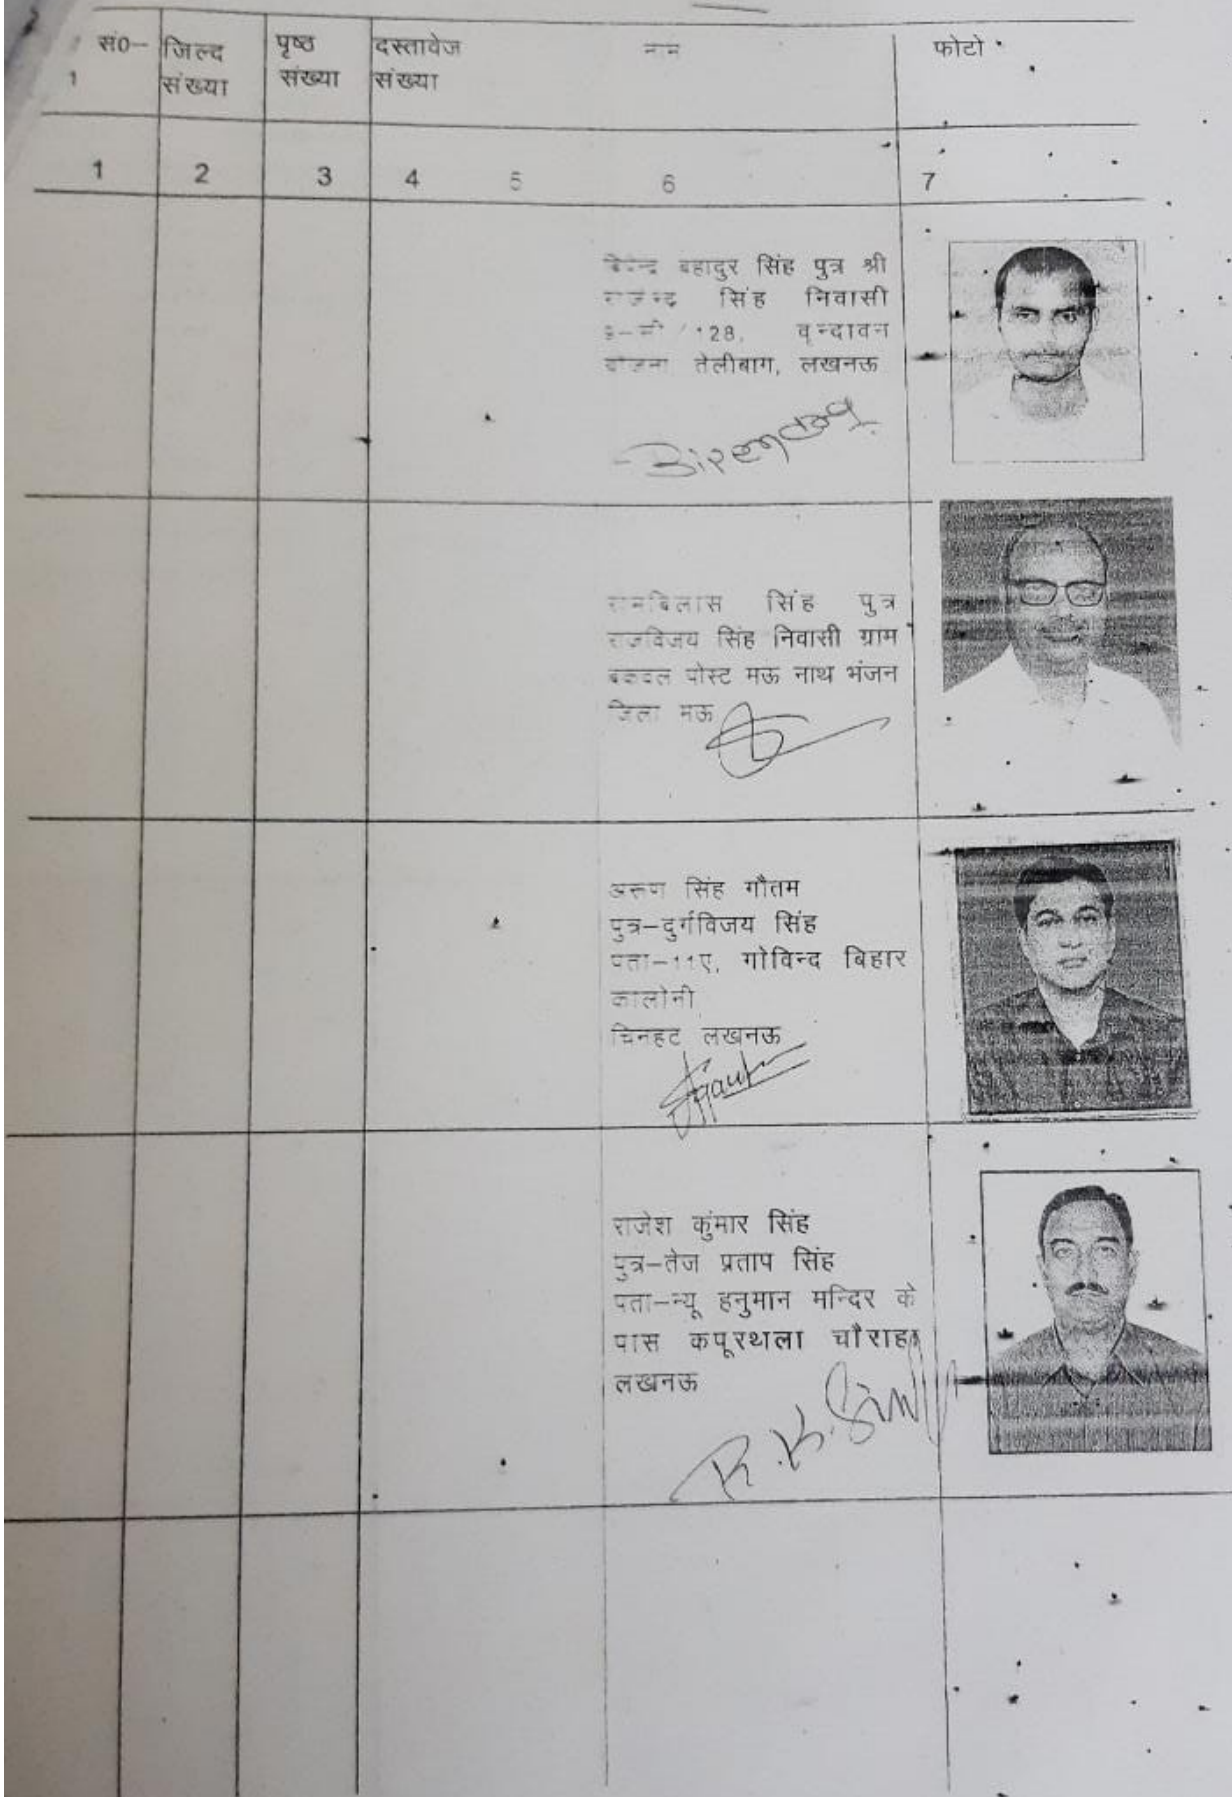 सं०– जिल्द पृष्ठ दस्तावेज नाम फोटो
1 संख्या संख्या संख्या
1 2 3 4 5 6 7
बहादुर सिंह पुत्र श्री
सिंह निवासी
128, वृन्दावन
योजना तेलीबाग, लखनऊ
रामबिलास सिंह पुत्र
राजविजय सिंह निवासी ग्राम
पोस्ट मऊ नाथ भंजन
जिला मऊ
अरूण सिंह गौतम
पुत्र–दुर्गविजय सिंह
पता–11ए, गोविन्द बिहार
कालोनी
चिनहट लखनऊ
राजेश कुंमार सिंह
पुत्र–तेज प्रताप सिंह
पता–न्यू हनुमान मन्दिर के
पास कपूरथला चौराहा
लखनऊ
R.K.Singh